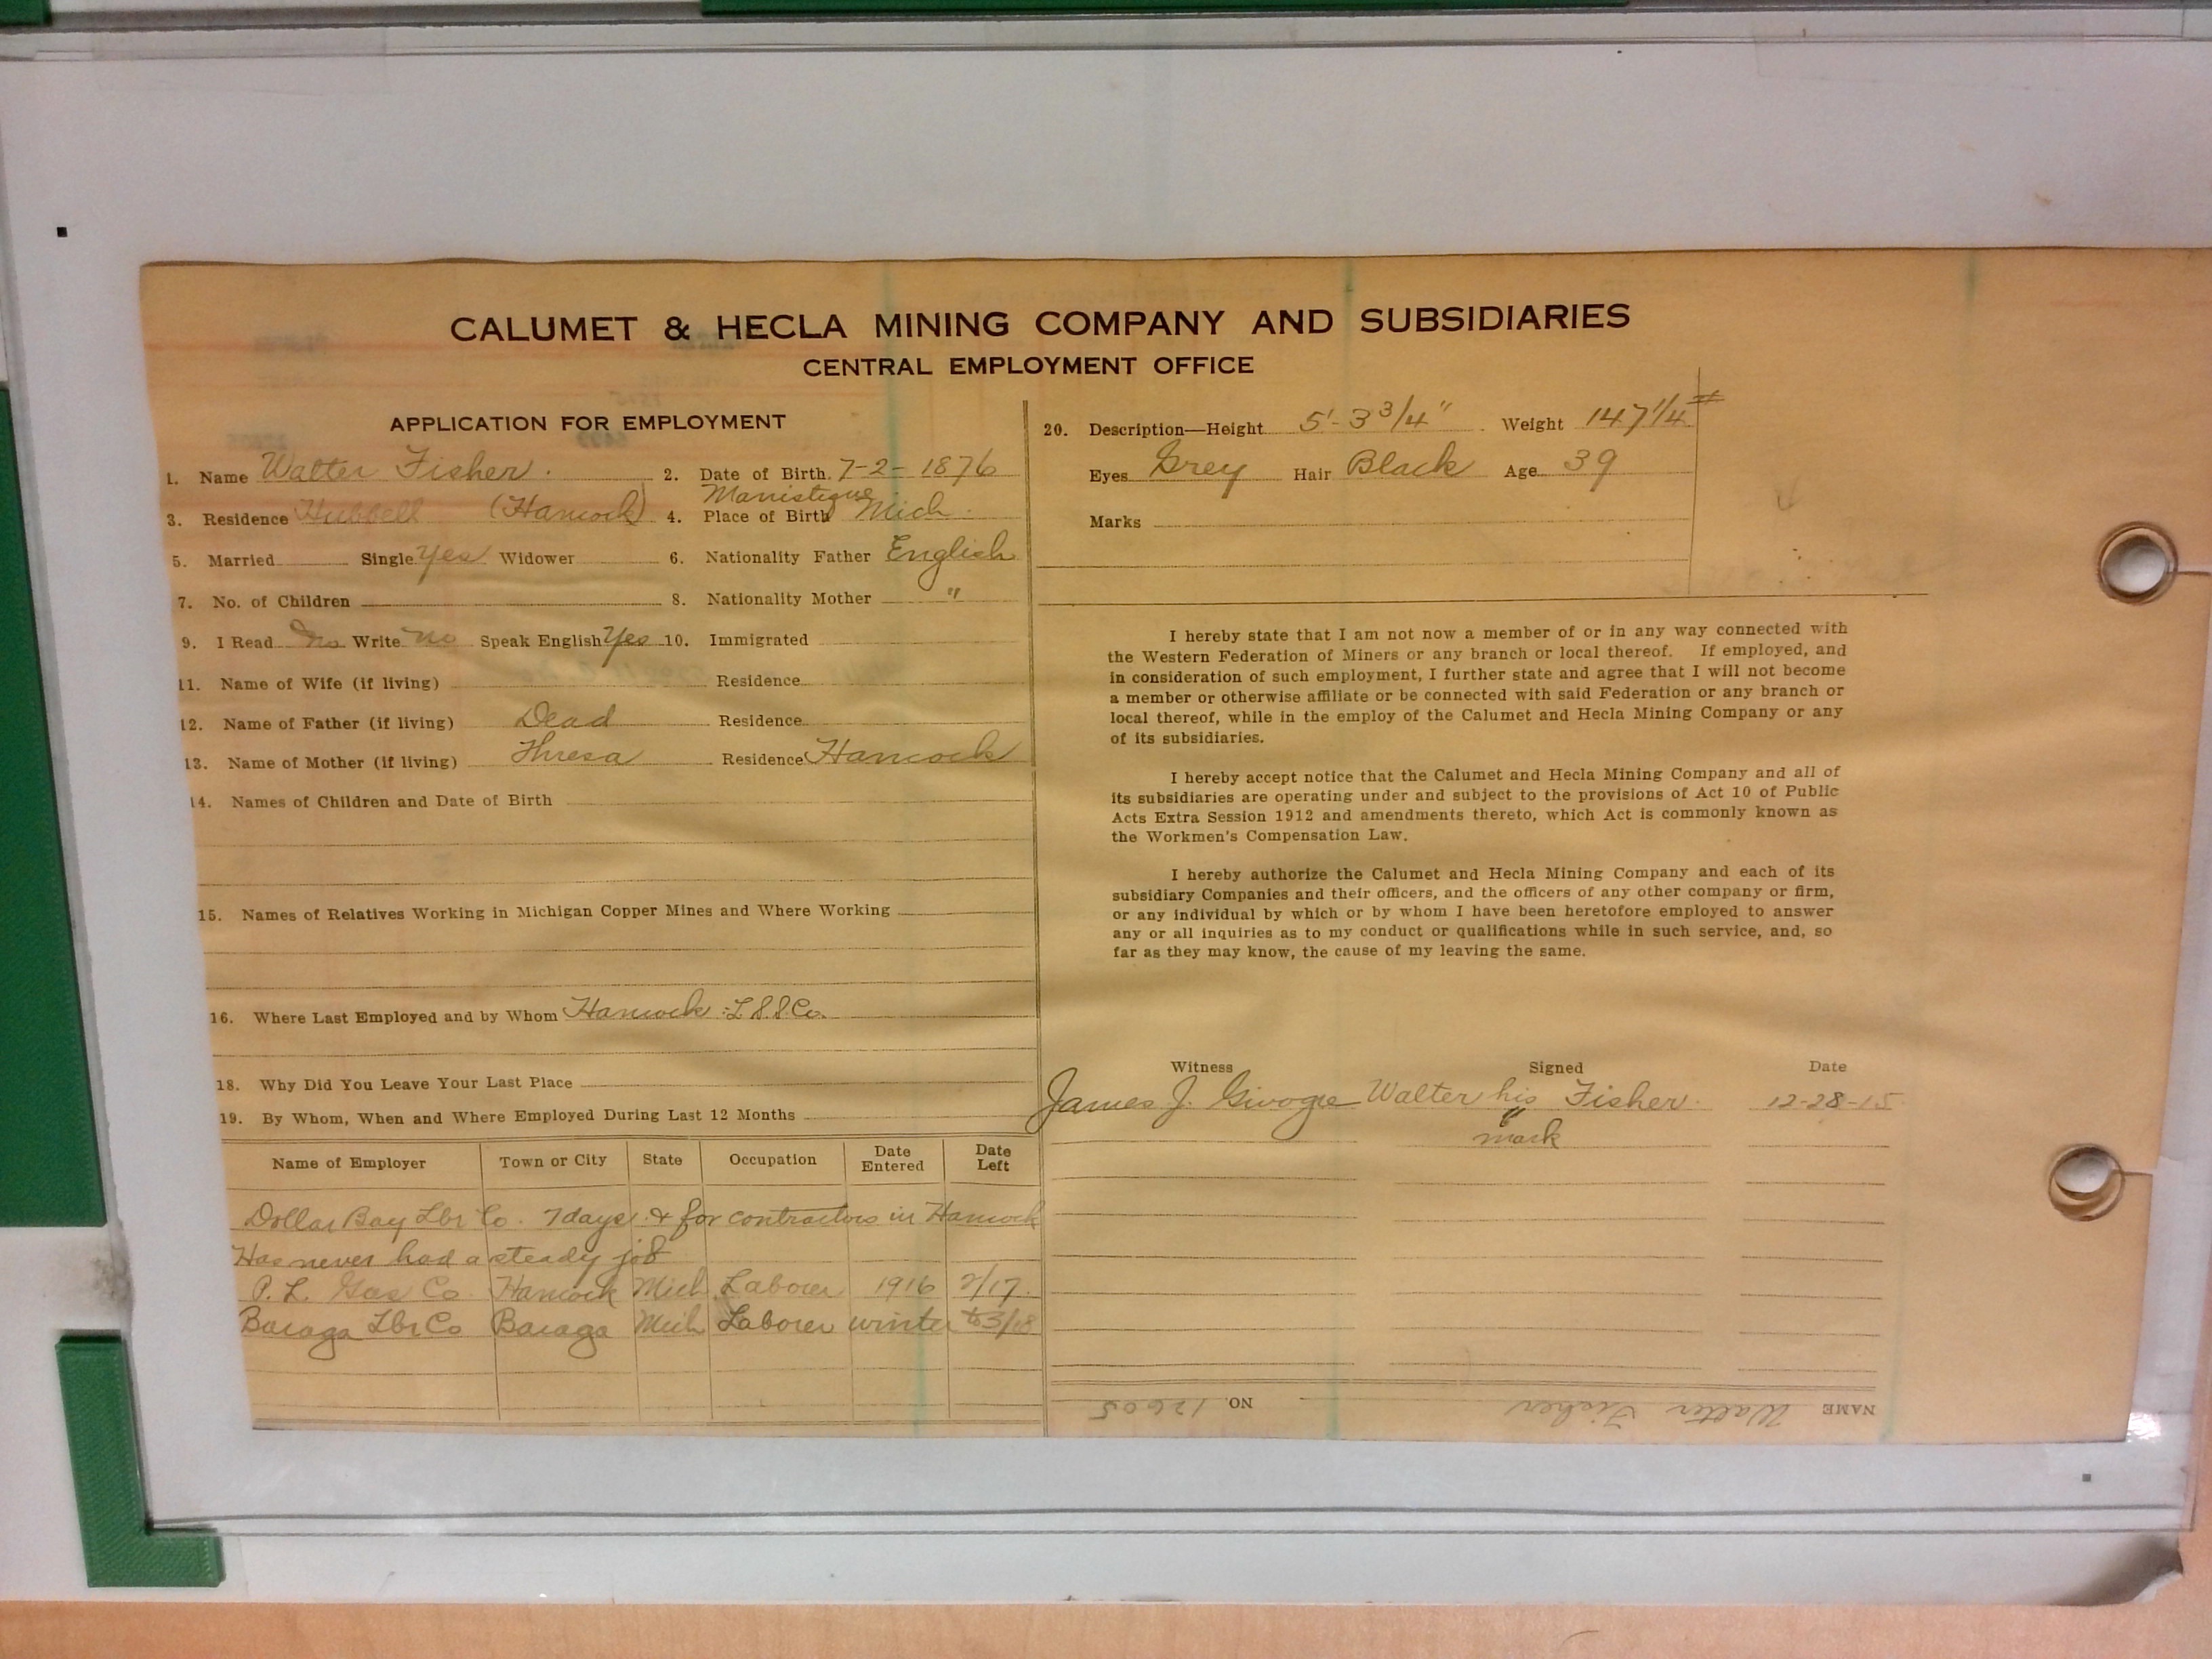 CALUMET & HECLA MINING COMPANY AND SUBSIDIARIES
CENTRAL EMPLOYMENT OFFICE
APPLICATION FOR EMPLOYMENT
1. Name Walter Fisher. 2. Date of Birth 7-2-1876
3. Residence Hubbell (Hancock) 4. Place of Birth Manistique Mich.
5. Married Single Yes Widower 6. Nationality Father English
7. No. of Children 8. Nationality Mother "
9. I Read No Write No Speak English Yes 10. Immigrated
11. Name of Wife (if living) Residence
12. Name of Father (if living) Dead Residence
13. Name of Mother (if living) Thresa Residence Hancock
14. Names of Children and Date of Birth
15. Names of Relatives Working in Michigan Copper Mines and Where Working
16. Where Last Employed and by Whom Hancock :L.S.S.Co.
18. Why Did You Leave Your Last Place
19. By Whom, When and Where Employed During Last 12 Months
Name of Employer Town or City State Occupation Date Entered Date Left
Dollar Bay Lbr Co. 7 days & for contractors in Hancock
Has never had a steady job
P. L. Gas Co. Hancock Mich Laborer 1916 2/17.
Baraga Lbr Co Baraga Mich Laborer winter to 3/18
20. Description—Height 5'-3 3/4" Weight 147 1/4 #
Eyes Grey Hair Black Age 39
Marks
I hereby state that I am not now a member of or in any way connected with
the Western Federation of Miners or any branch or local thereof. If employed, and
in consideration of such employment, I further state and agree that I will not become
a member or otherwise affiliate or be connected with said Federation or any branch or
local thereof, while in the employ of the Calumet and Hecla Mining Company or any
of its subsidiaries.
I hereby accept notice that the Calumet and Hecla Mining Company and all of
its subsidiaries are operating under and subject to the provisions of Act 10 of Public
Acts Extra Session 1912 and amendments thereto, which Act is commonly known as
the Workmen's Compensation Law.
I hereby authorize the Calumet and Hecla Mining Company and each of its
subsidiary Companies and their officers, and the officers of any other company or firm,
or any individual by which or by whom I have been heretofore employed to answer
any or all inquiries as to my conduct or qualifications while in such service, and, so
far as they may know, the cause of my leaving the same.
Witness Signed Date
James J. Walter his Fisher. 12-28-15
mark
NAME Walter Fisher NO. 12605